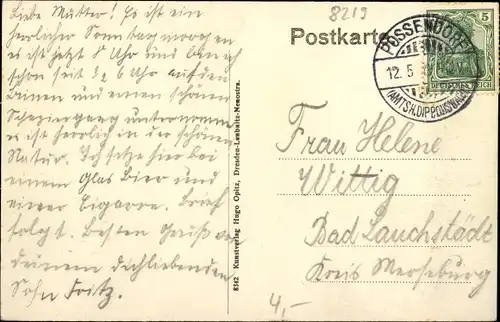 Liebe Mutter! Es ist ein
herrlicher Sonntagmorgen
es ist jetzt 8 Uhr und bin ich
schon seit 1/2 6 Uhr auf den
Beinen und einen schönen
Spaziergang unternommen
es ist herrlich in der schönen
Natur. Ich sitze hier bei
einem Glas Bier und
einer Zigarre. Brief
folgt. Besten Gruß von
deinem dichliebenden
Sohn Fritz.
8219
Postkarte
POSSENDORF
12. 5
(AMTSH. DIPPOLDISWALDE)
5
DEUTSCHES REICH
Frau Helene
Wittig
Bad Lauchstädt
Kreis Merseburg
4,-
8342 Kunstverlag Hugo Opitz, Dresden-Leubnitz-Neuostra.